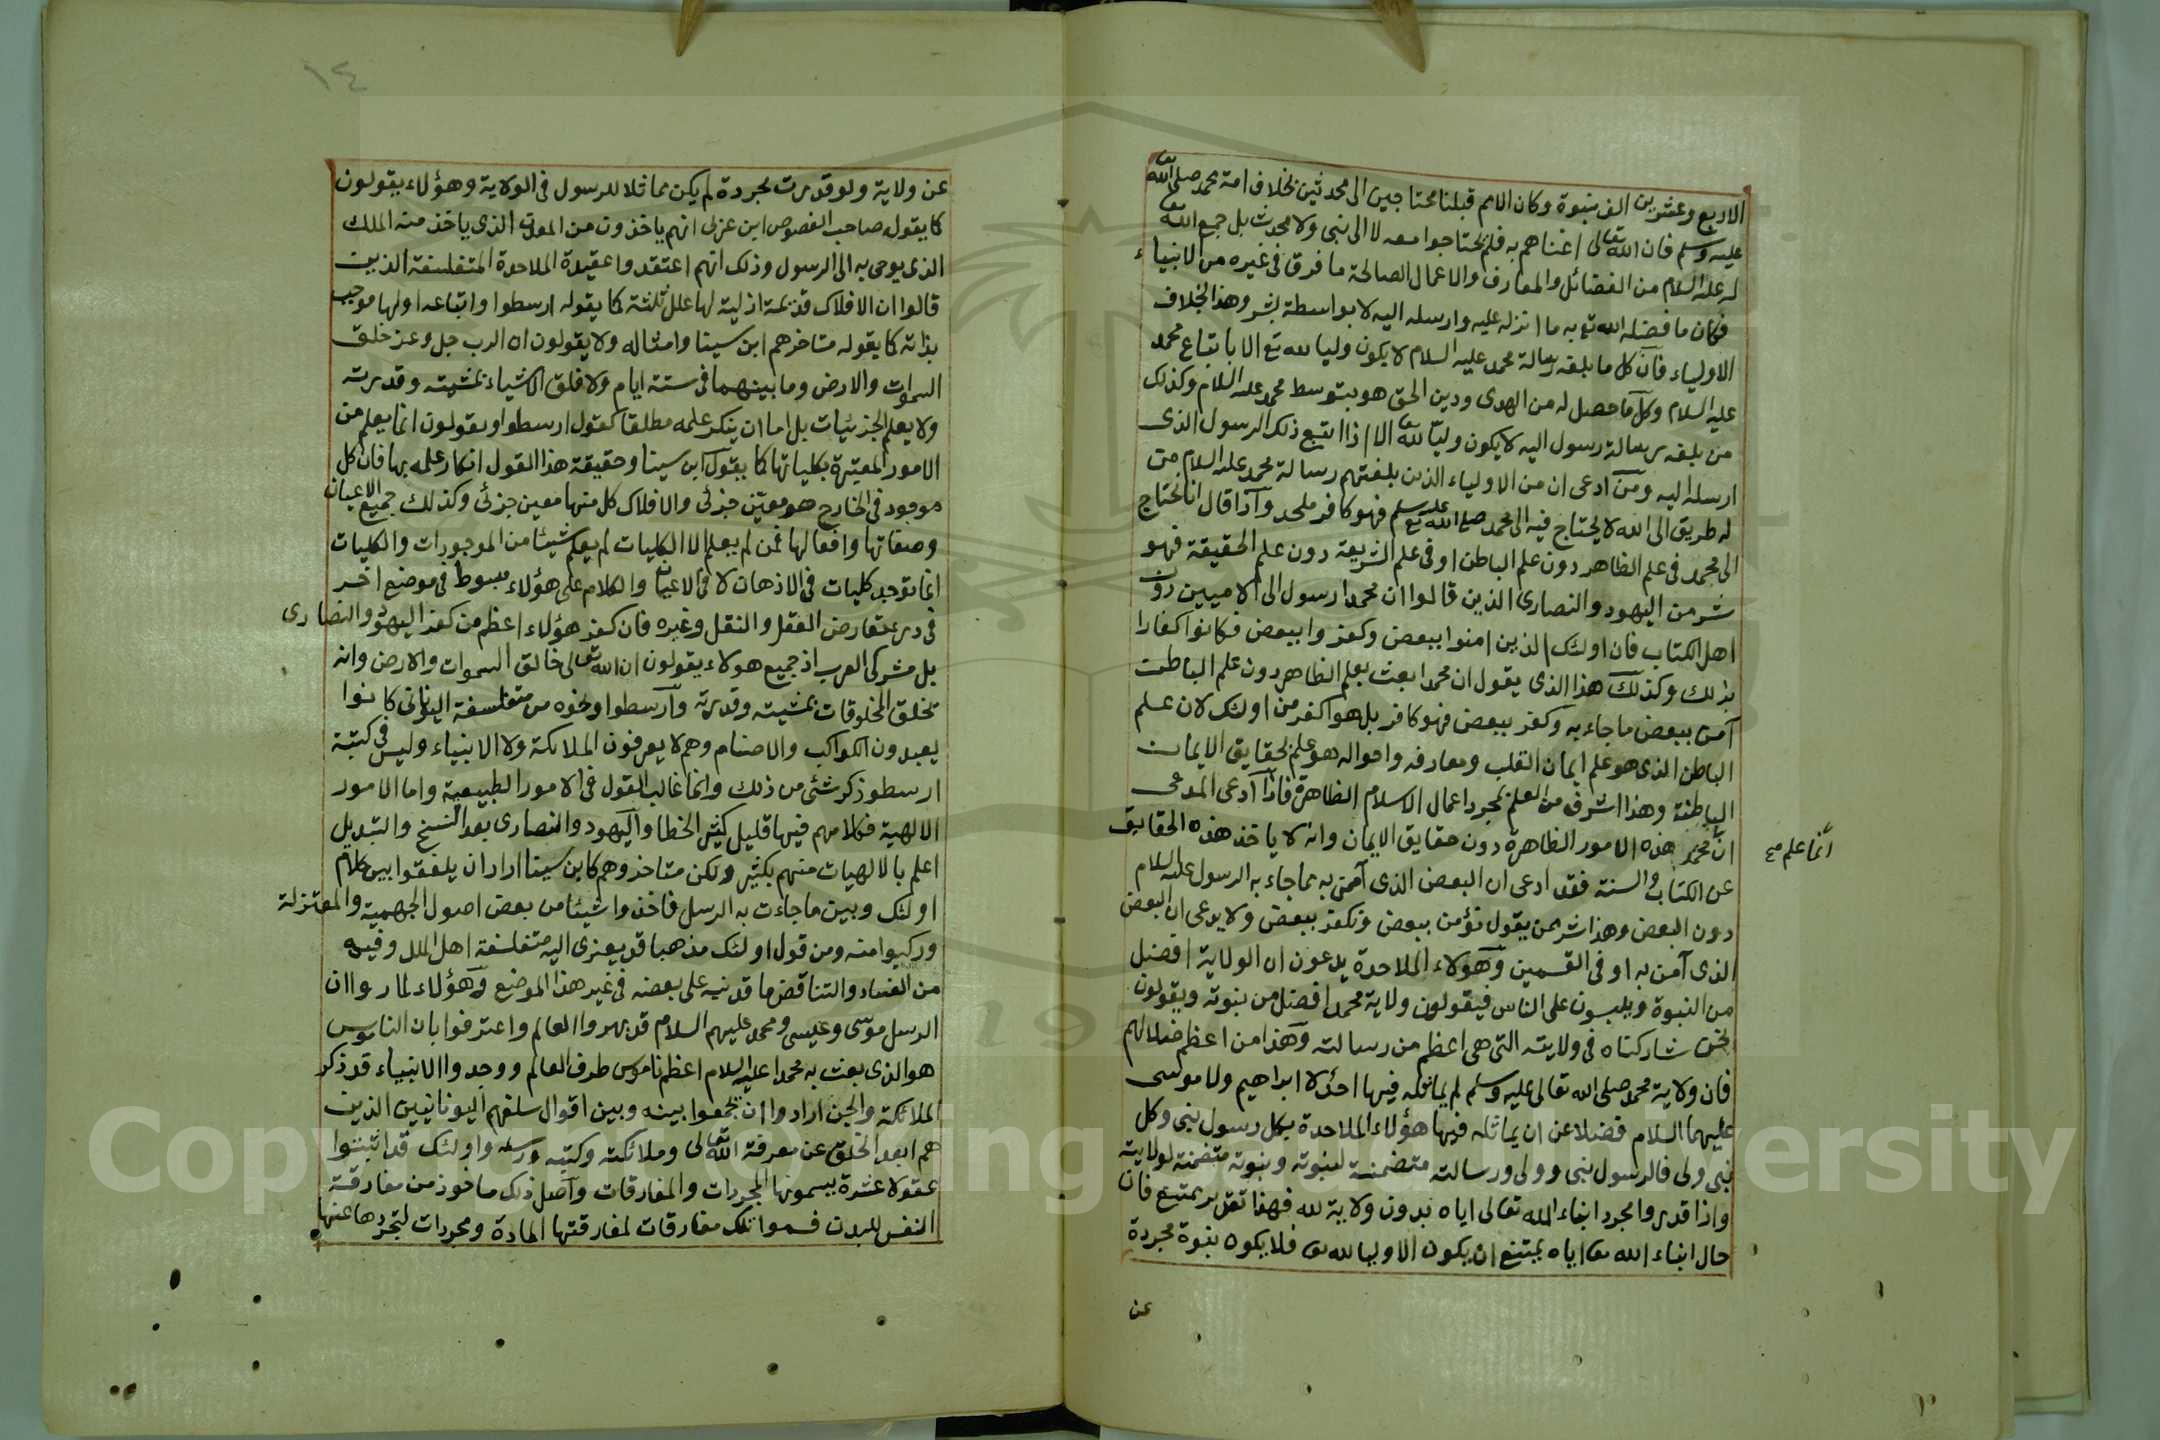 الاربع وعشرين الف نبوة وكان الامم قبلنا محتاجين الى محدثين بخلاف امة محمد صلى الله تع
عليه وسلم فان الله تعالى اغناهم به فلم يحتاجوا معه لا الى نبى ولا محدث بل جمع الله تع
له عليه السلام من الفضائل والمعارف والاعمال الصالحة ما فرق فى غيره من الانبياء
فكان ما فضله الله تع به ما انزله عليه وارسله اليه لا بواسطة بشر وهذا بخلاف
الاولياء فان كل ما بلغه رسالة محمد عليه السلام لا يكون وليا لله تع الا باتباع محمد
عليه السلام وكل ما حصل له من الهدى ودين الحق هو بتوسط محمد عليه السلام وكذلك
من بلغه رسالة رسول اليه لا يكون وليا لله تع الا اذا اتبع ذلك الرسول الذى
ارسله اليه ومن ادعى ان من الاولياء الذين بلغتهم رسالة محمد عليه السلام من
له طريق الى الله لا يحتاج فيه الى محمد صلى الله تع عليه وسلم فهو كافر ملحد واذا قال انا محتاج
الى محمد فى علم الظاهر دون علم الباطن او فى علم الشريعة دون علم الحقيقة فهو
شر من اليهود والنصارى الذين قالوا ان محمدا رسول الى الاميين دون
اهل الكتاب فان اولئك الذين امنوا ببعض وكفروا ببعض فكانوا كفارا
بذلك وكذلك هذا الذى يقول ان محمدا بعث بعلم الظاهر دون علم الباطن
آمن ببعض ما جاء به وكفر ببعض فهو كافر بل هو اكفر من اولئك لان علم
الباطن الذى هو علم ايمان القلب ومعارفه واحواله هو علم بحقايق الايمان
الباطنة وهذا اشرف من العلم بمجرد اعمال الاسلام الظاهرة فاذا ادعى المدعى
ان محمد هذه الامور الظاهرة دون حقايق الايمان وانه لا ياخذ هذه الحقايق
انما علم
عن الكتاب والسنة فقد ادعى ان البعض الذى آمن به مما جاء به الرسول عليه السلام
دون البعض وهذا شر ممن يقول نؤمن ببعض ونكفر ببعض ولا يدعى ان البعض
الذى آمن به اوفى القسمين وهؤلاء الملاحدة يدعون ان الولاية افضل
من النبوة ويلبسون على الناس فيقولون ولاية محمد افضل من نبوته ويقولون
نحن شاركناه فى ولايته التى هى اعظم من رسالته وهذا من اعظم ضلالهم
فان ولاية محمد صلى الله تعالى عليه وسلم لم يماثله فيها احد لا ابراهيم ولا موسى
عليهما السلام فضلا عن ان يماثله فيها هؤلاء الملاحدة بكل رسول نبى وكل
نبى ولى فالرسول نبى وولى ورسالته متضمنة لنبوته ونبوته متضمنة لولايته
واذا قدروا مجرد انباء الله تعالى اياه بدون ولاية لله فهذا تقدير ممتنع فان
حال انباء الله تع اياه يمتنع ان يكون الا وليا لله تع فلا يكون نبوة مجردة
عن
١٤
عن ولاية ولو قدرت مجردة لم يكن مماثلا للرسول فى الولاية وهؤلاء يقولون
كما يقوله صاحب الفصوص ابن عربى انهم ياخذون من المعدن الذى ياخذ منه الملك
الذى يوحى به الى الرسول وذلك انهم اعتقدوا عقيدة الملاحدة المتفلسفة الذين
قالوا ان الافلاك قديمة ازلية لها علل ثلثة كما يقوله ارسطوا واتباعه اولها موجب
بذاته كما يقوله متاخرهم ابن سينا وامثاله ولا يقولون ان الرب جل وعز خلق
السموات والارض وما بينهما فى ستة ايام ولا خلق الاشياء بمشيته وقدرته
ولا يعلم الجزئيات بل اما ان ينكر علمه مطلقا كقول ارسطو او يقولون انما يعلم من
الامور المتغيرة بكلياتها كما يقول ابن سينا وحقيقة هذا القول انكار علمه بها فان كل
موجود فى الخارج هو معين جزئى والافلاك كل منها معين جزئى وكذلك جميع الاعيان
وصفاتها وافعالها فمن لم يعلم الا الكليات لم يعلم شيئا من الموجودات والكليات
انما توجد كليات فى الاذهان لا فى الاعيان والكلام على هؤلاء مبسوط فى موضع اخر
فى درء تعارض العقل والنقل وغيره فان كفر هؤلاء اعظم من كفر اليهود والنصارى
بل مشركى العرب اذ جميع هولاء يقولون ان الله تعالى خالق السموات والارض وانه
تخلق المخلوقات بمشيته وقدرته وارسطوا ونحوه من متفلسفة اليونانى كانوا
يعبدون الكواكب والاصنام وهم لا يعرفون الملائكة ولا الانبياء وليس فى كتبة
ارسطو ذكر شئى من ذلك وانما غالب القول فى الامور الطبيعية واما الامور
الالهية فكلامهم فيها قليل كثير الخطا واليهود والنصارى بعد النسخ والتبديل
اعلم بالالهيات منهم بكثير ولكن متاخروهم كابن سينا ارادا ان يلفقوا بين كلام
اولئك وبين ما جاءت به الرسل فاخذوا شيئا من بعض اصول الجهمية والمعتزلة
وركبوا منه ومن قول اولئك مذهبا قد يعزى اليه متفلسفة اهل الملل وفيه
من الفساد والتناقض ما قد نبه على بعضه فى غير هذا الموضع وهؤلاء لما رواان
الرسل موسى وعيسى ومحمد عليهم السلام قد بهروا العالم واعترفوا بان الناموس
هو الذى بعث به محمدا عليه السلام اعظم ناموس طرف العالم ووجدوا الانبياء قد ذكر
الملائكة والجن ارادوا ان يجمعوا بينه وبين اقوال سلفهم اليونانيين الذين
هم ابعد الخلق عن معرفة الله تعالى وملائكته وكتبه ورسله واولئك قد اثبتوا
عقولا عشرة يسمونها المجردات والمفارقات واصل ذلك ماخوذ من مفارقة
النفس للبدن فسموا تلك مفارقات لمفارقتها المادة ومجردات لتجردها عنها
Copyright © King Saud University